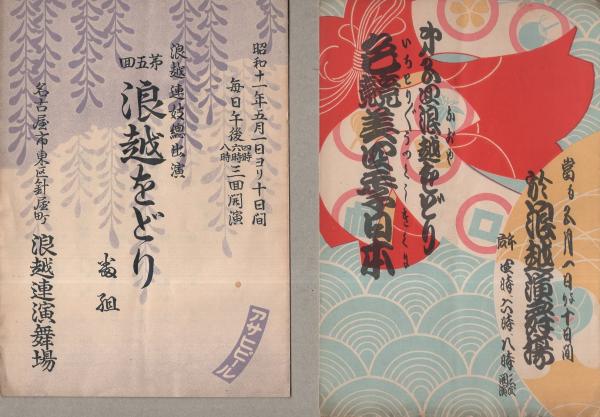 昭和十一年五月一日ヨリ十日間
毎日午後四時六時八時三回開演
浪越連妓總出演
第五回
浪越をどり
番組
名古屋市東区針屋町
浪越連演舞場
アサヒビール
當る五月一日より十日間
於浪越演舞場
四時六時八時
第五回浪越をどり
なごや
色競美四季日本